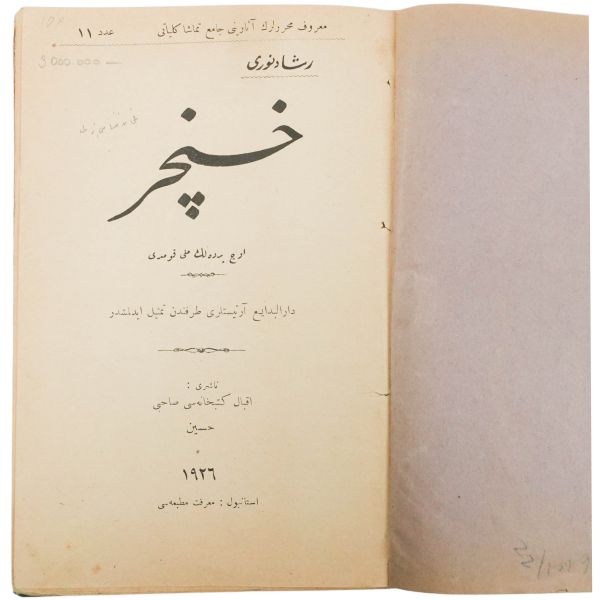 معروف محررلرك آثارينى جامع تماشا كلياتى عدد ١١
رشاد نورى
9000.000 —
خنجر
اوچ پرده‌لك ملى قومدى
دارالبدايع آرتيستلرى طرفندن تمثيل ايدلمشدر
ناشرى :
اقبال كتبخانه‌سى صاحبى
حسين
١٩٢٦
استانبول : معرفت مطبعه‌سى